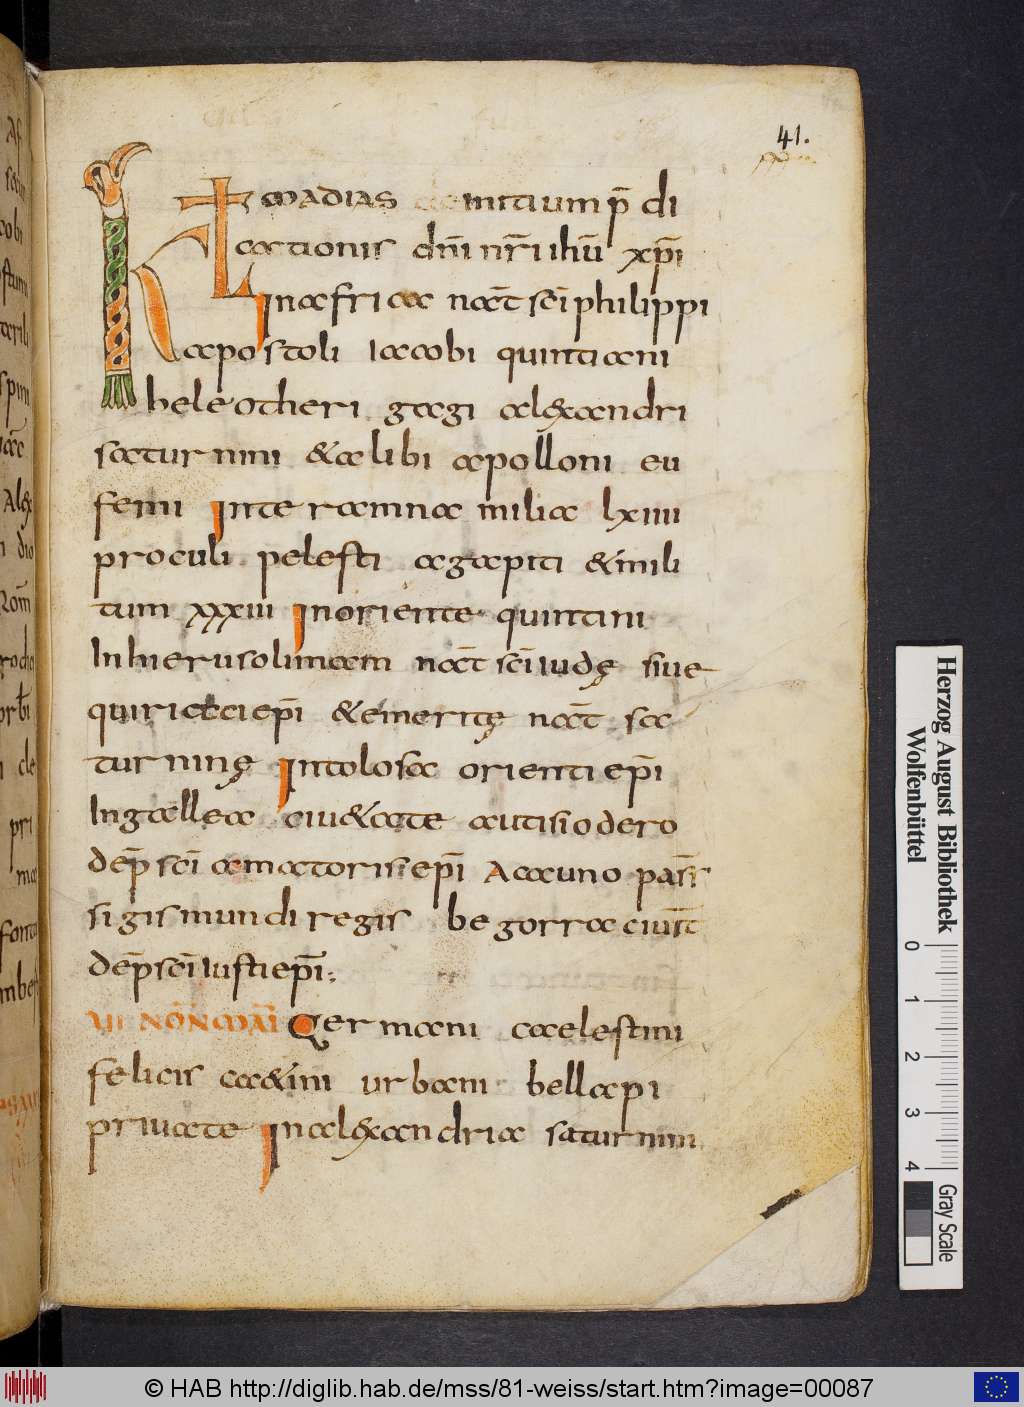 41.
KL madias initium p̄ di
cationis dn̄i nr̄i ihū xp̄i
in africa nat̄ sc̄i philippi
apostoli iacobi quintiani
heleotheri gagi alexandri
saturnini & alibi apolloni eu
femi interamna milia lxiiii
proculi pelesti agapiti & mili
tum xxxiii in oriente quintini
In hierusolimam nat̄ sc̄i iudę siue
quiriaci ep̄i & emeritę nat̄ sa
turninę in tolosa orienti ep̄i
In gallea ciu&ate autisiodero
dep̄ sc̄i amatoris ep̄i Acauno pas̄s
sigismundi regis begorra ciuit̄
dep̄ sc̄i iusti ep̄i
VI NŌN MĀI Germani caelestini
felicis ca&ini urbani bellapi
priuate in alexandria saturnini
Herzog August Bibliothek
Wolfenbüttel
0 1 2 3 4
Gray Scale
© HAB http://diglib.hab.de/mss/81-weiss/start.htm?image=00087